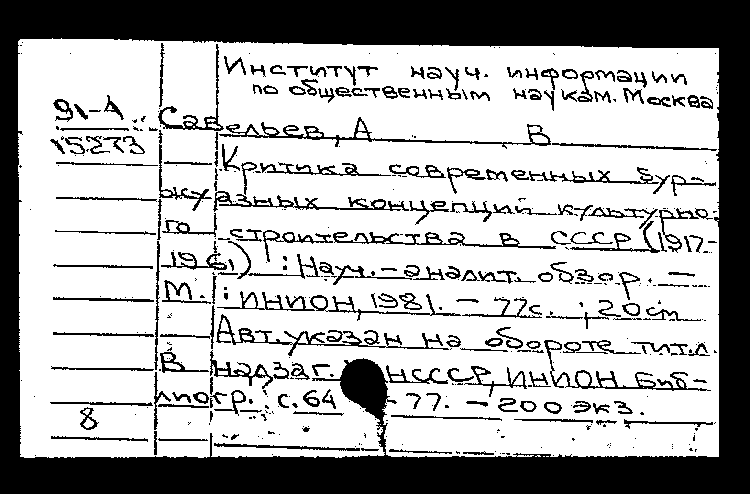 Институт науч. информации
по общественным наукам. Москва.
91-А
15273
Савельев, А В
Критика современных бур-
жуазных концепций культурно-
го строительства в СССР (1917-
1961) : Науч.-аналит. обзор. —
М. : ИНИОН, 1981. — 77с. ; 20см
Авт. указан на обороте тит.л.
В надзаг. НСССР, ИНИОН. Биб-
лиогр. с.64 -77. — 200 экз.
8